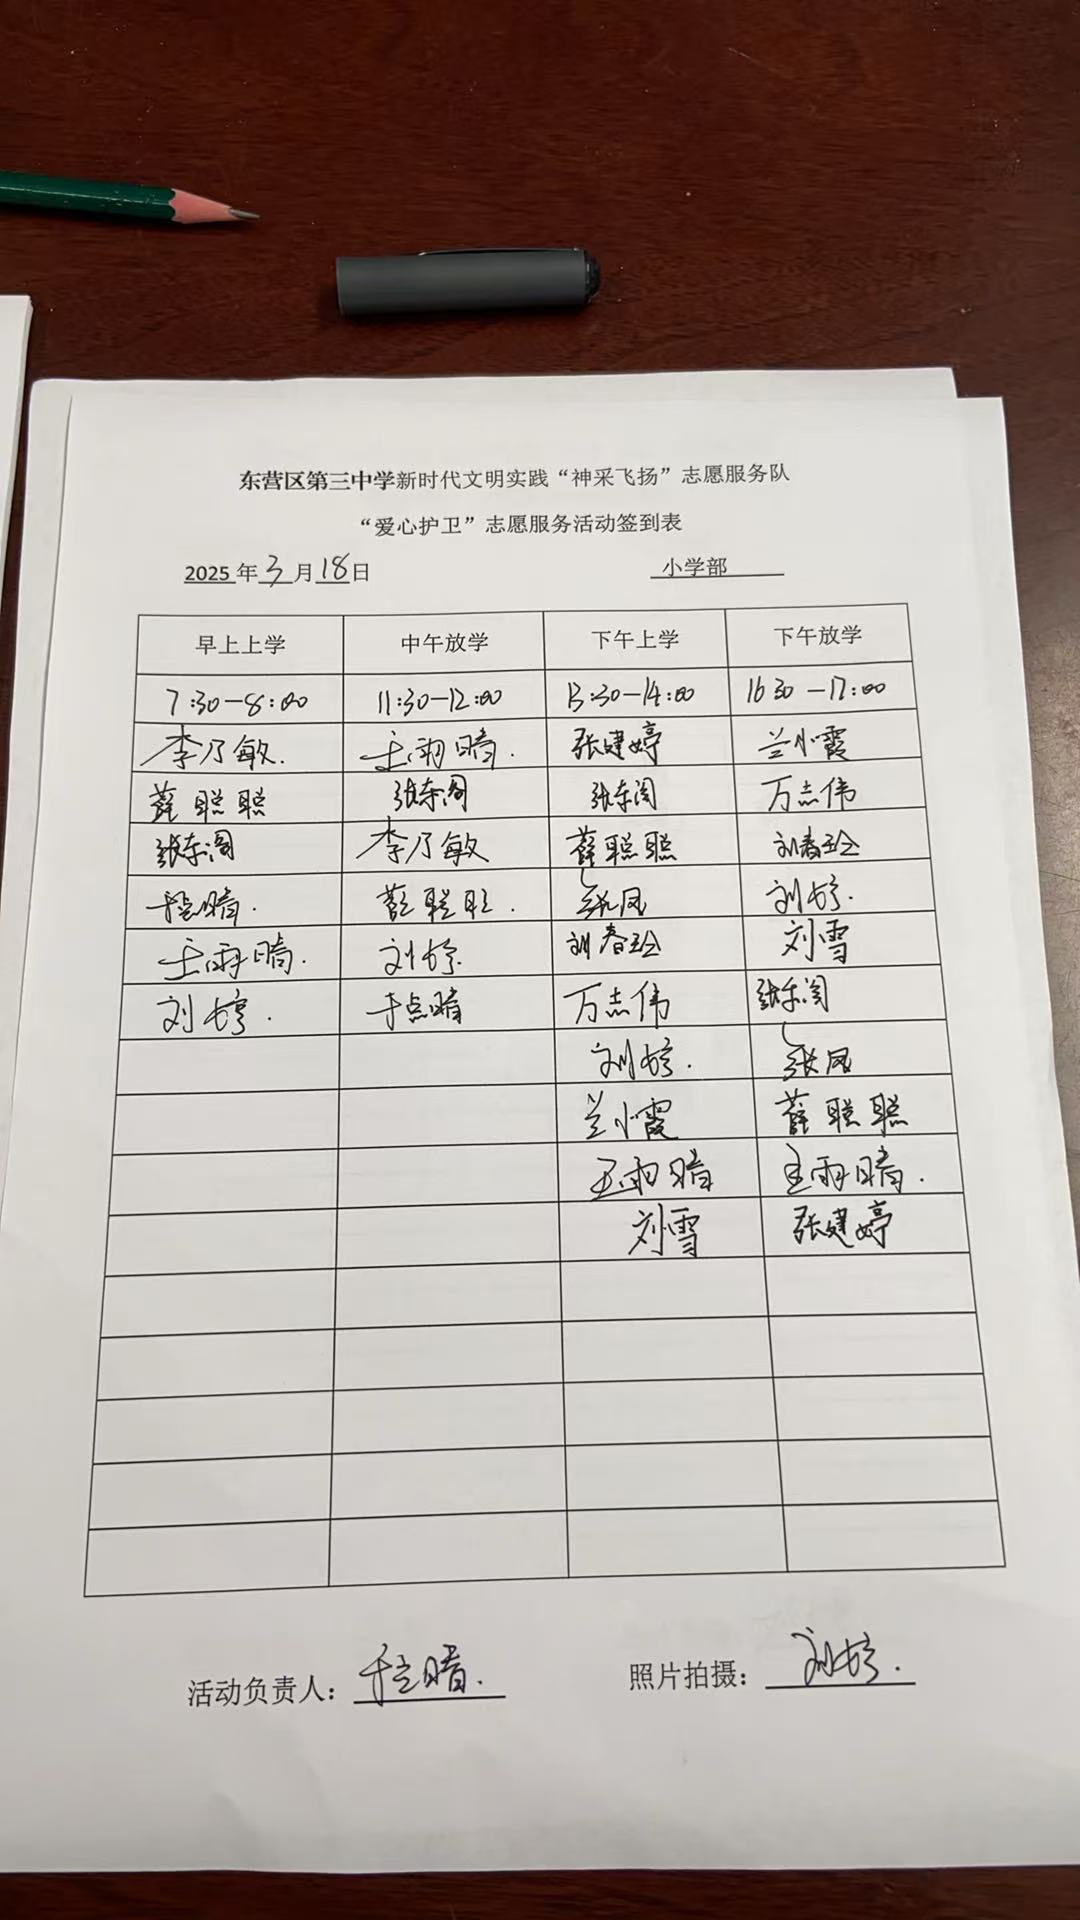 东营区第三中学新时代文明实践“神采飞扬”志愿服务队
“爱心护卫”志愿服务活动签到表
2025年3月18日 小学部
早上上学 中午放学 下午上学 下午放学
7:30-8:00 11:30-12:00 13:30-14:00 16 30-17:00
李乃敏. 王雨晴. 张建婷 兰小霞
薛聪聪 张东阁 张东阁 万志伟
张东阁 李乃敏 薛聪聪 刘春玲
于点晴. 薛聪聪. 张凤 刘婷.
王雨晴. 刘婷. 刘春玲 刘雪
刘婷. 于点晴 万志伟 张东阁
刘婷. 张凤
兰小霞 薛聪聪
王雨晴 王雨晴.
刘雪 张建婷
活动负责人：于点晴. 照片拍摄：刘婷.